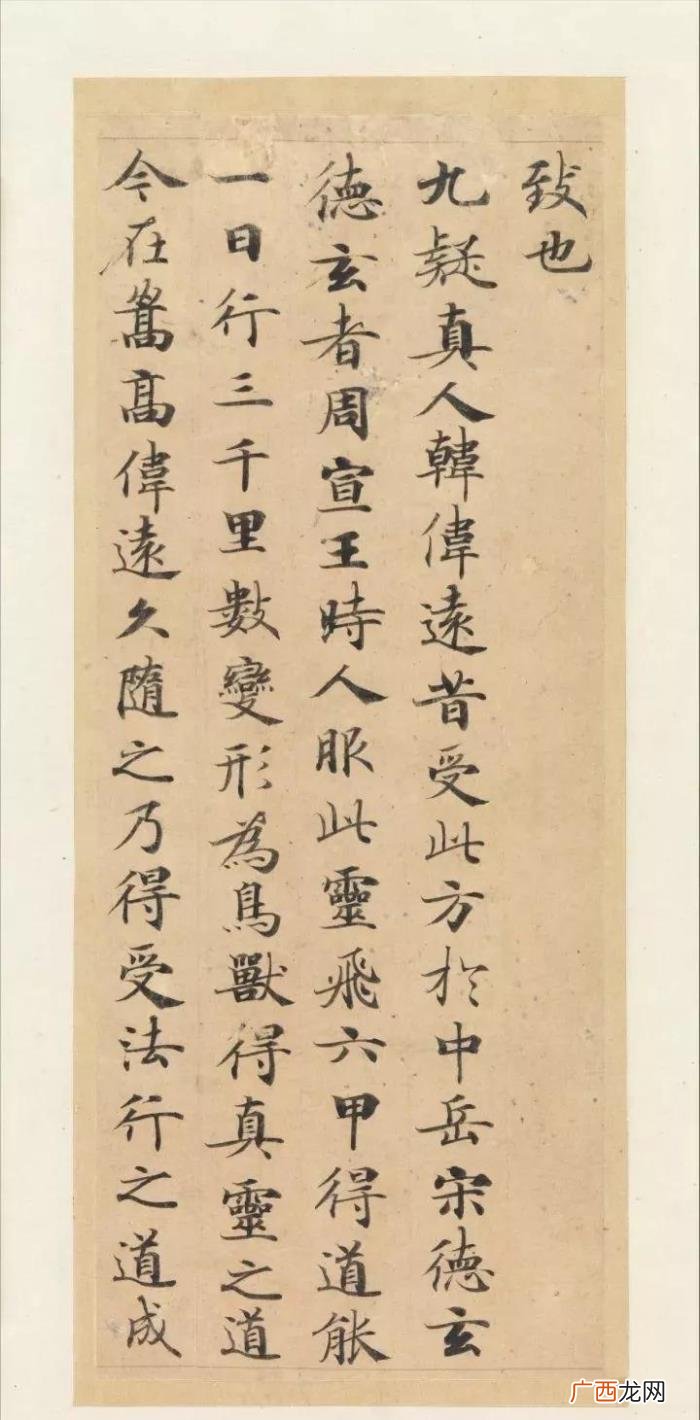 致也
九疑真人韓偉遠昔受此方於中岳宋德玄
德玄者周宣王時人服此靈飛六甲得道能
一日行三千里數變形為鳥獸得真靈之道
今在嵩高偉遠久隨之乃得受法行之道成
广西龙网